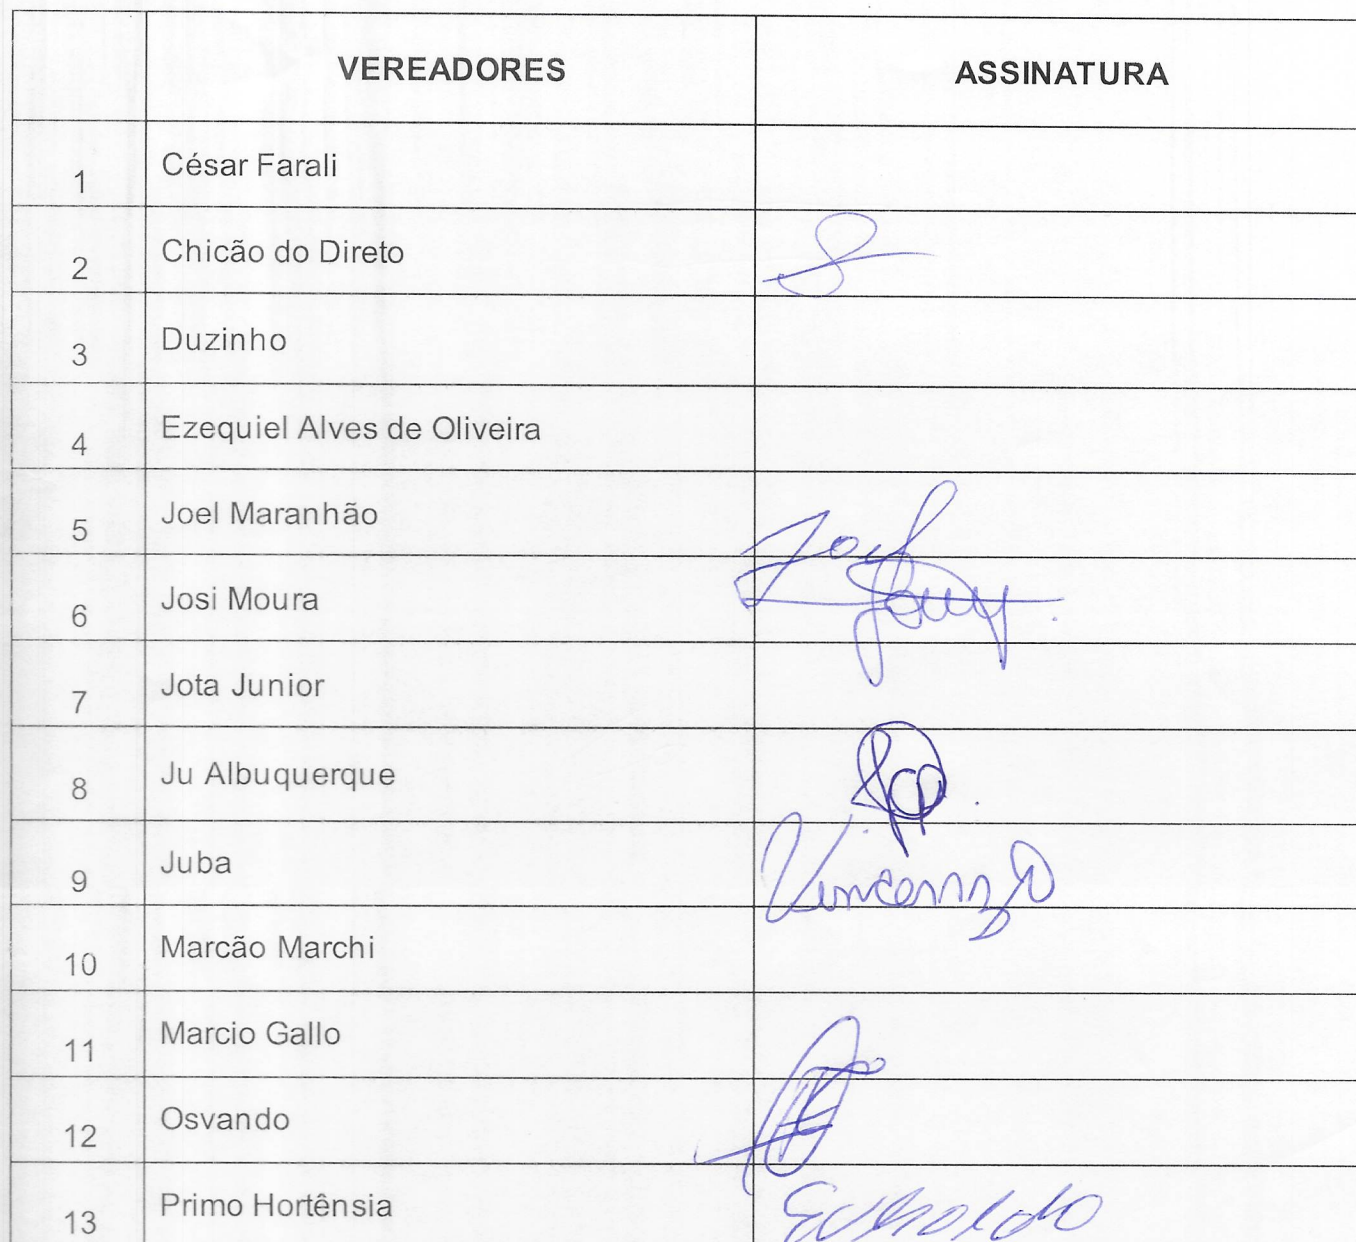 VEREADORES ASSINATURA
1 César Farali
2 Chicão do Direto
3 Duzinho
4 Ezequiel Alves de Oliveira
5 Joel Maranhão Joel
6 Josi Moura
7 Jota Junior
8 Ju Albuquerque
9 Juba Vincenzo
10 Marcão Marchi
11 Marcio Gallo
12 Osvando
13 Primo Hortênsia